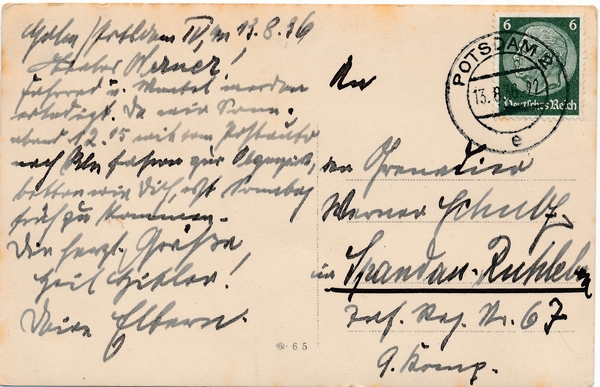 Golm/Potsdam IV, m 13.8.36
Lieber Werner!
Fahrrad u. Mantel werden
erledigt. Da wir Sonn-
abend 12.15 mit dem Postauto
nach Bln fahren zur Olympiade,
bitten wir Dich, erst Sonntag
früh zu kommen.
Die herzl. Grüße
Heil Hitler!
Deine Eltern.
An
den Grenadier
Werner Schulz,
in Spandau-Ruhleben
Inf. Reg. Nr. 67
9. Komp.
6 6
Deutsches Reich
POTSDAM
13.8.36
e
65